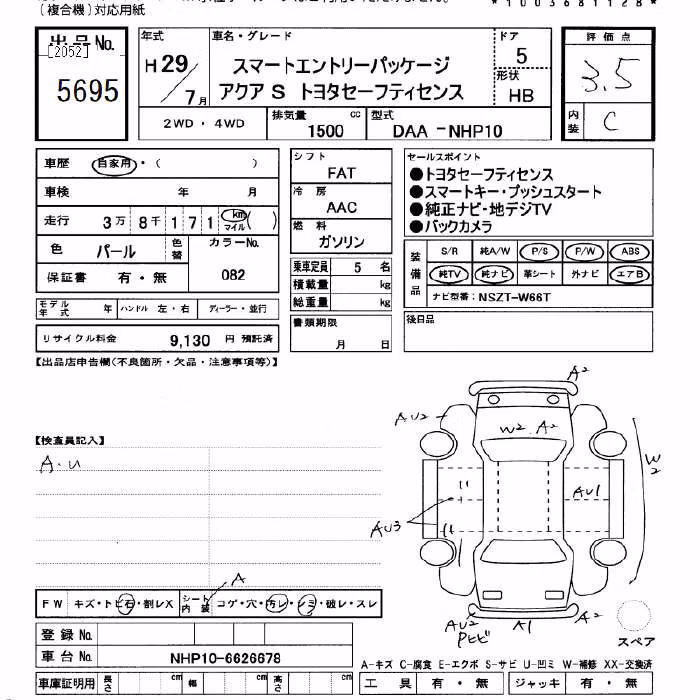 (複合機)対応用紙
*1003681128*
出品No.
[2052]
5695
年式
H29/7月
車名・グレード
スマートエントリーパッケージ
アクア S トヨタセーフティセンス
ドア
5
形状
HB
評価点
3.5
内装
C
2WD・4WD
排気量
1500 cc
型式
DAA -NHP10
車歴 自家用・( )
車検 年 月
走行 3万 8千 1 7 1 km マイル ( )
色 パール 色替 カラーNo.
保証書 有・無 082
シフト
FAT
冷房
AAC
燃料
ガソリン
乗車定員 5 名
積載量 kg
総重量 kg
書類期限
月 日
セールスポイント
●トヨタセーフティセンス
●スマートキー・プッシュスタート
●純正ナビ・地デジTV
●バックカメラ
装備品
S/R 純A/W P/S P/W ABS
純TV 純ナビ 革シート 外ナビ エアB
ナビ型番: NSZT-W66T
後日品
モデル年式 年 ハンドル 左・右 ディーラー・並行
リサイクル料金 9,130 円 預託済
【出品店申告欄(不良箇所・欠品・注意事項等)】
【検査員記入】
A・U
A2
AU2
W2 A2
W2
AU1
AU3
A
FW キズ・トビ石・割レX シート内装 コゲ・穴・汚レ・シミ・破レ・スレ
AU2
Pヒビ
A1
A2
スペア
登録No.
車台No. NHP10-6626678
車庫証明用 長さ cm 幅 cm 高さ cm
A-キズ C-腐食 E-エクボ S-サビ U-凹ミ W-補修 XX-交換済
工具 有・無 ジャッキ 有・無